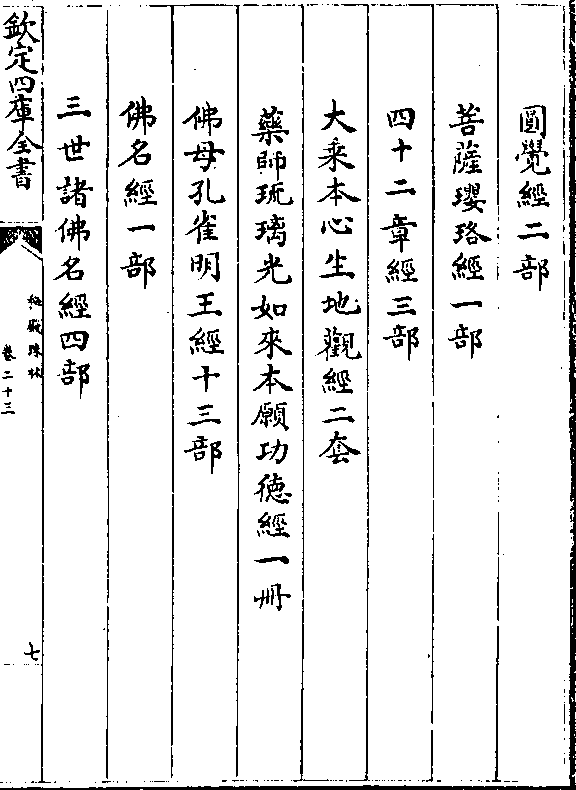 圓覺經二部
菩薩瓔珞經一部
四十二章經三部
大乘本心生地觀經二套
藥師琉璃光如來本願功德經一冊
佛母孔雀明王經十三部
佛名經一部
三世諸佛名經四部
欽定四庫全書
秘殿珠林
卷二十三
七